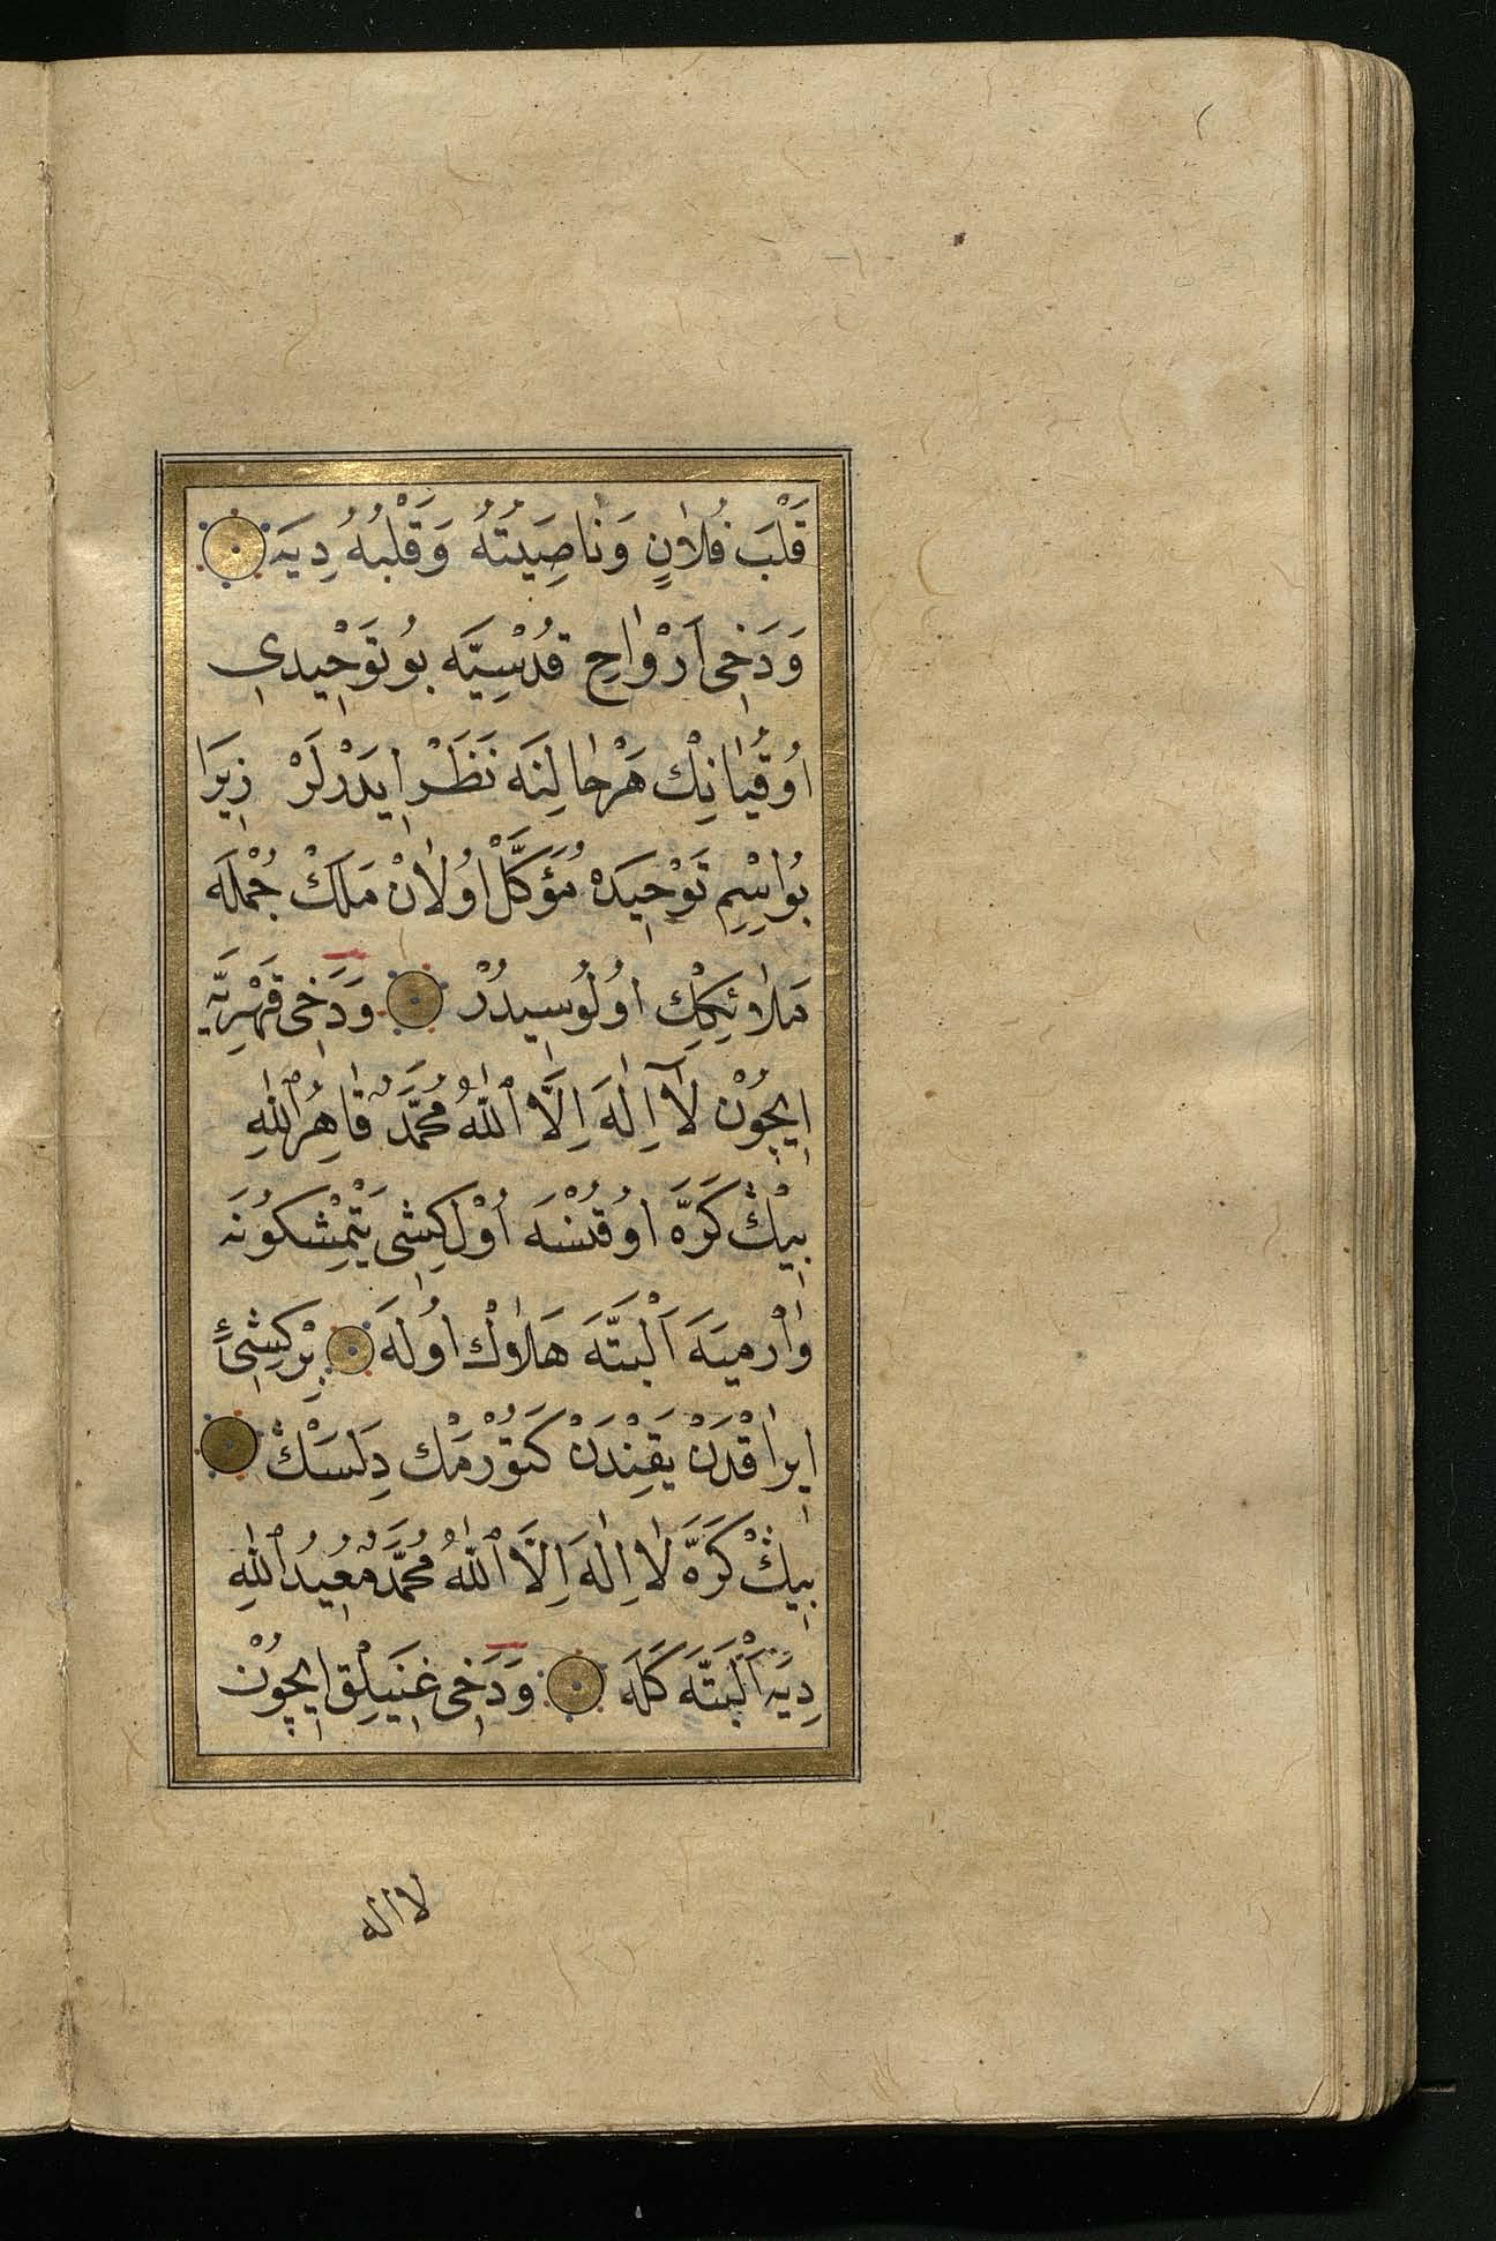 قَلْبَ فُلَانٍ وَنَاصِيَتُهُ وَقَلْبُهُ دِيَه
وَدَخِى اَرْوَاحِ قُدْسِيَّه بُو تَوْحِيدِى
اُوقُيَانِكْ هَرْحَالِنَه نَظَرْ اِيدَرْلَرْ زِيرَا
بُواِسْمِ تَوْحِيدَه مُؤَكَّلْ اُولَانْ مَلَكْ جُمْلَه
مَلَائِكِكْ اُولُوسِيدُرْ وَدَخِى قَهْرِيَّه
اِيچُونْ لَآ اِلٰهَ اِلَّا ٱللّٰهُ مُحَمَّدٌ قَاهِرُ ٱللّٰهِ
بِيڭْ كَرَّه اُوقُنْسَه اُوْلْ كِشِى يَتْمِشْ كُونَه
وَارْمِيَه اَلْبَتَّه هَلَاكْ اُولَه بِرْ كِشِىئِ
اِيرَاقْدَنْ يَقِنْدَنْ كَتُورْمَكْ دِلَسَڭْ
بِيڭْ كَرَّه لَا اِلٰهَ اِلَّا ٱللّٰهُ مُحَمَّدٌ مُعِيدُ ٱللّٰهِ
دِيَه اَلْبَتَّه كَلَه وَدَخِى غَنِيلِقْ اِيچُونْ
لا اله